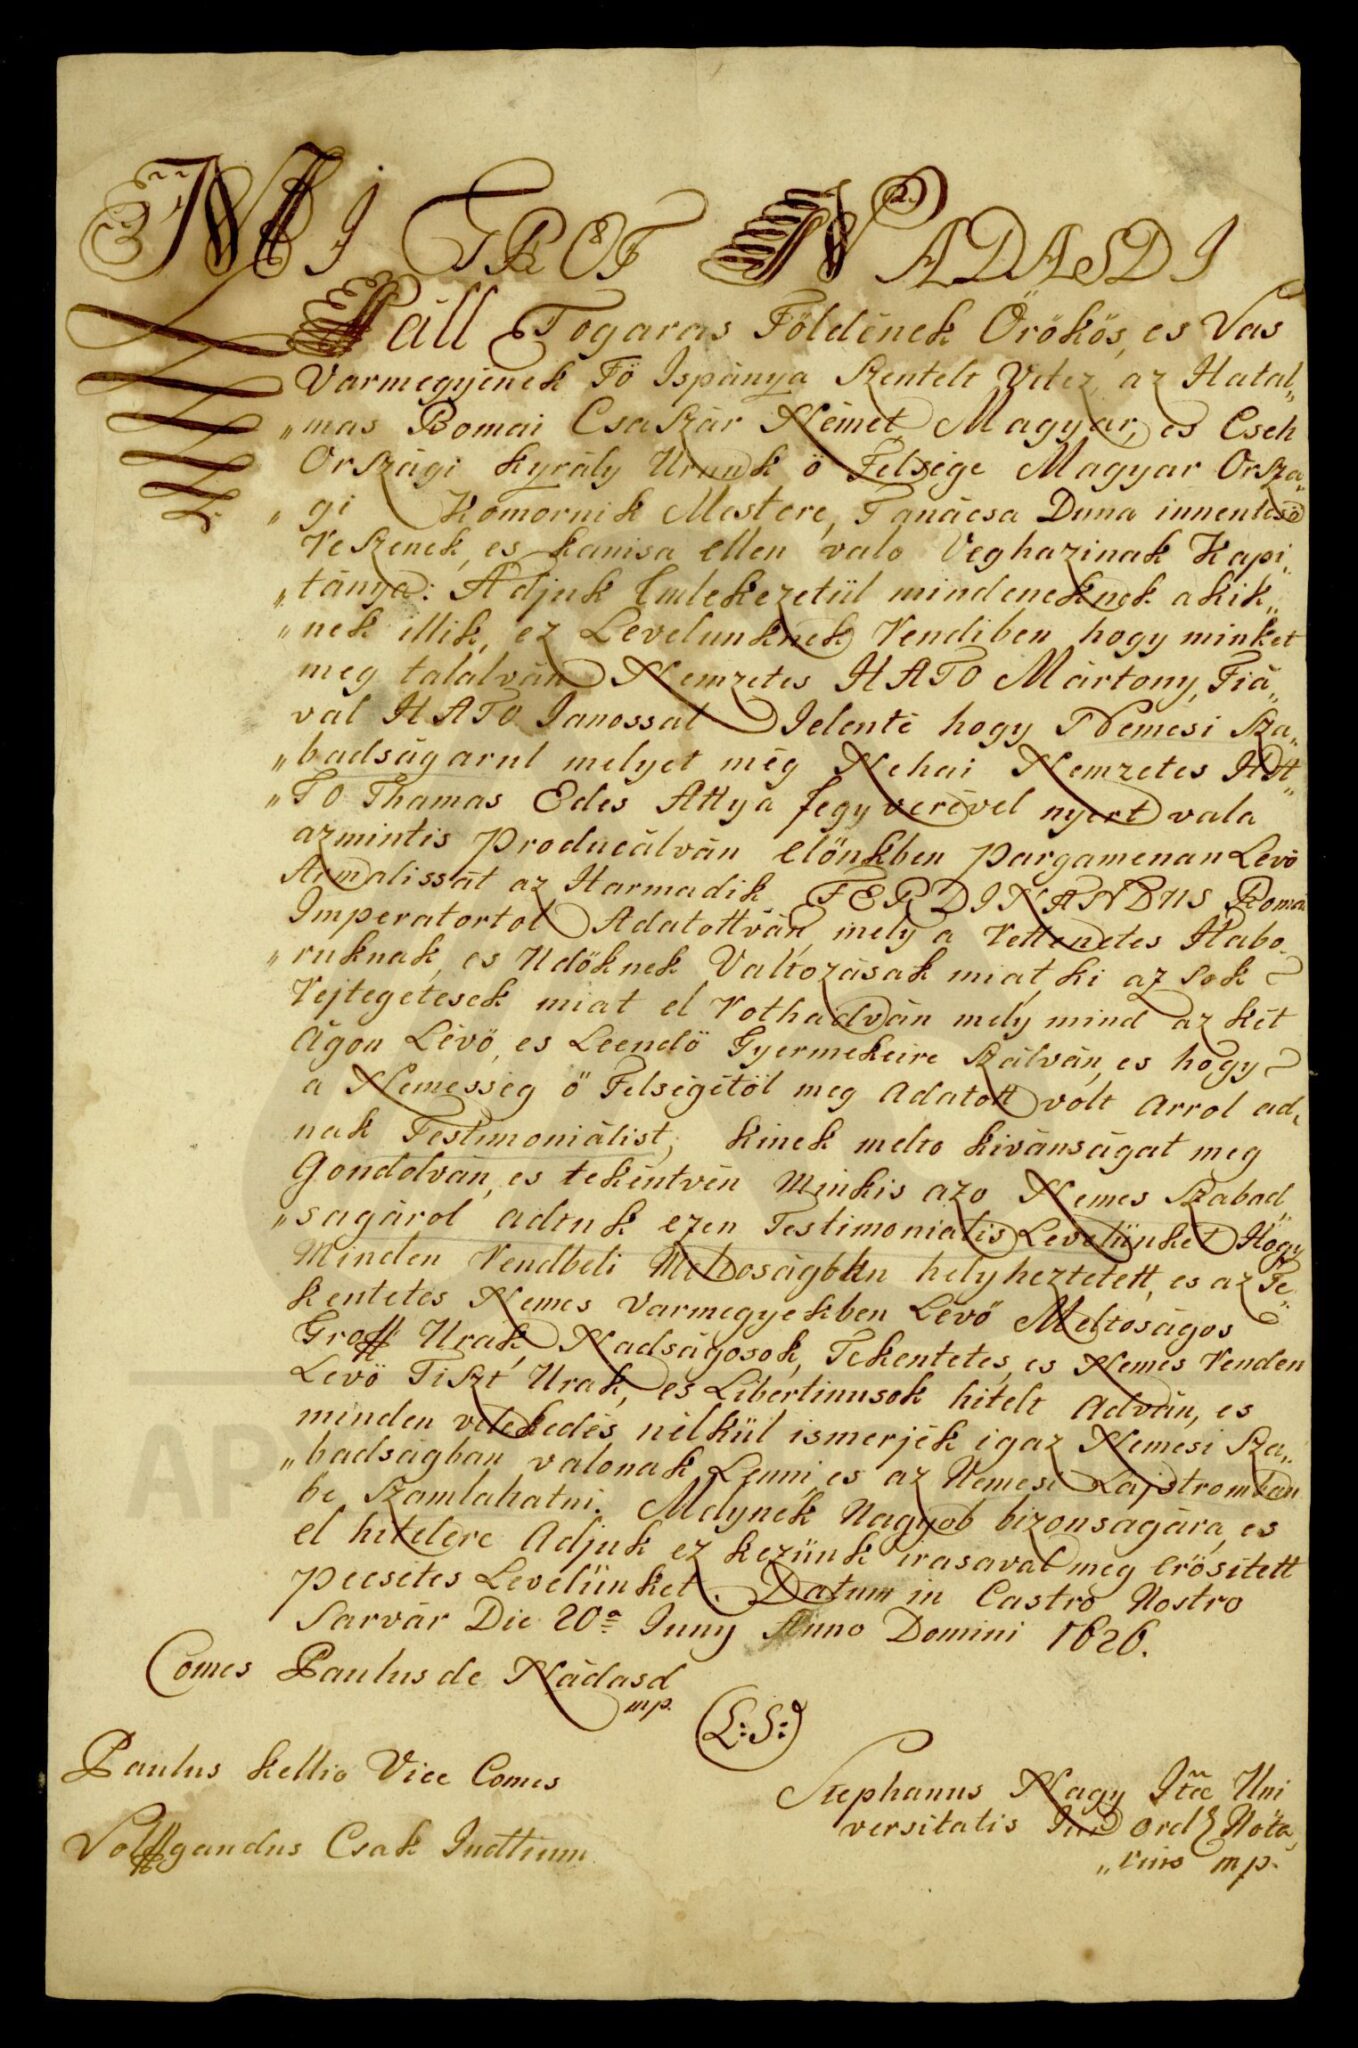 MI GROF NADASDI
Páll Fogaras Földének Örökös, es Vas
Varmegyjenek Fö Ispánya Szentelt Vitez, az Hatal„
„mas Romai Csaszár Német, Magyar, es Cseh
Országi Kyrály Urunk ö Felsége Magyar Orsza„
„gi Komornik Mestere, Tanácsa Duna innentsö
Reszenek, es kanisa ellen valo Veghazinak Kapi„
„tánya: Adjuk Emlekezetül mindeneknek akik„
„nek illik, ez Levelunknek Rendiben hogy minket
meg talalván Nemzetes HATO Mártony, Fiá„
val HATO Janossal Jelenté hogy Nemesi Sza„
„badságarul melyet még Nehai Nemzetes HA„
„TO Thamas Edes Attya fegyverével nyert vala
azmintis producálván elönkben pargamenan Levö
Armalissát az Harmadik FERDINANDUS Roma
Imperatortol Adatottván, mely a Rettenetes Habo„
„ruknak, es Udöknek Valtozásak miat, ki az sok
Rejtegetesek miat el Rothadván mely mind az két
Ágon Lévö, es Leendö Gyermekeire szálván, es hogy
a Nemesség ö Felségitöl meg adatott volt arrol ad„
nak Testimoniálist, kinek melto kivánságat meg
Gondolván, es tekintvén Minkis azo Nemes Szabad„
„ságárol adtuk ezen Testimonialis Levelünket Hogy
Minden Rendbeli Meltoságbkn helyheztetett, es az Te„
kentetes Nemes Varmegyekben Levö Meltoságos
Groff Urak, Nadságosok, Tekentetes, es Nemes Renden
Levö Tiszt Urak, es Libertinusok hitelt Adván, es
minden vetekedés nélkül ismerjék igaz Nemesi Sza„
„badsagban valonak Lenni, es az Nemesi Lajstromban
be Szamlahatni. Melynek Nagyob bizonsagára, es
el hitelere Adjuk ez kezünk irasaval meg erösitett
pecsétes Levelünket. Datum in Castro Nostro
Sarvár Die 20a Juny Anno Domini 1626.
Comes Paulus de Nádasd
mp.
(L:S:)
Paulus kellio Vice Comes
Stephanus Nagy Uni
versitatis ord Nota„
„rius mp.
Volffgandus Csak Iudlium